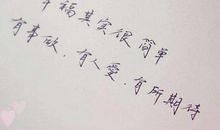 幸福其实很简单
有事做，有人爱，有所期待